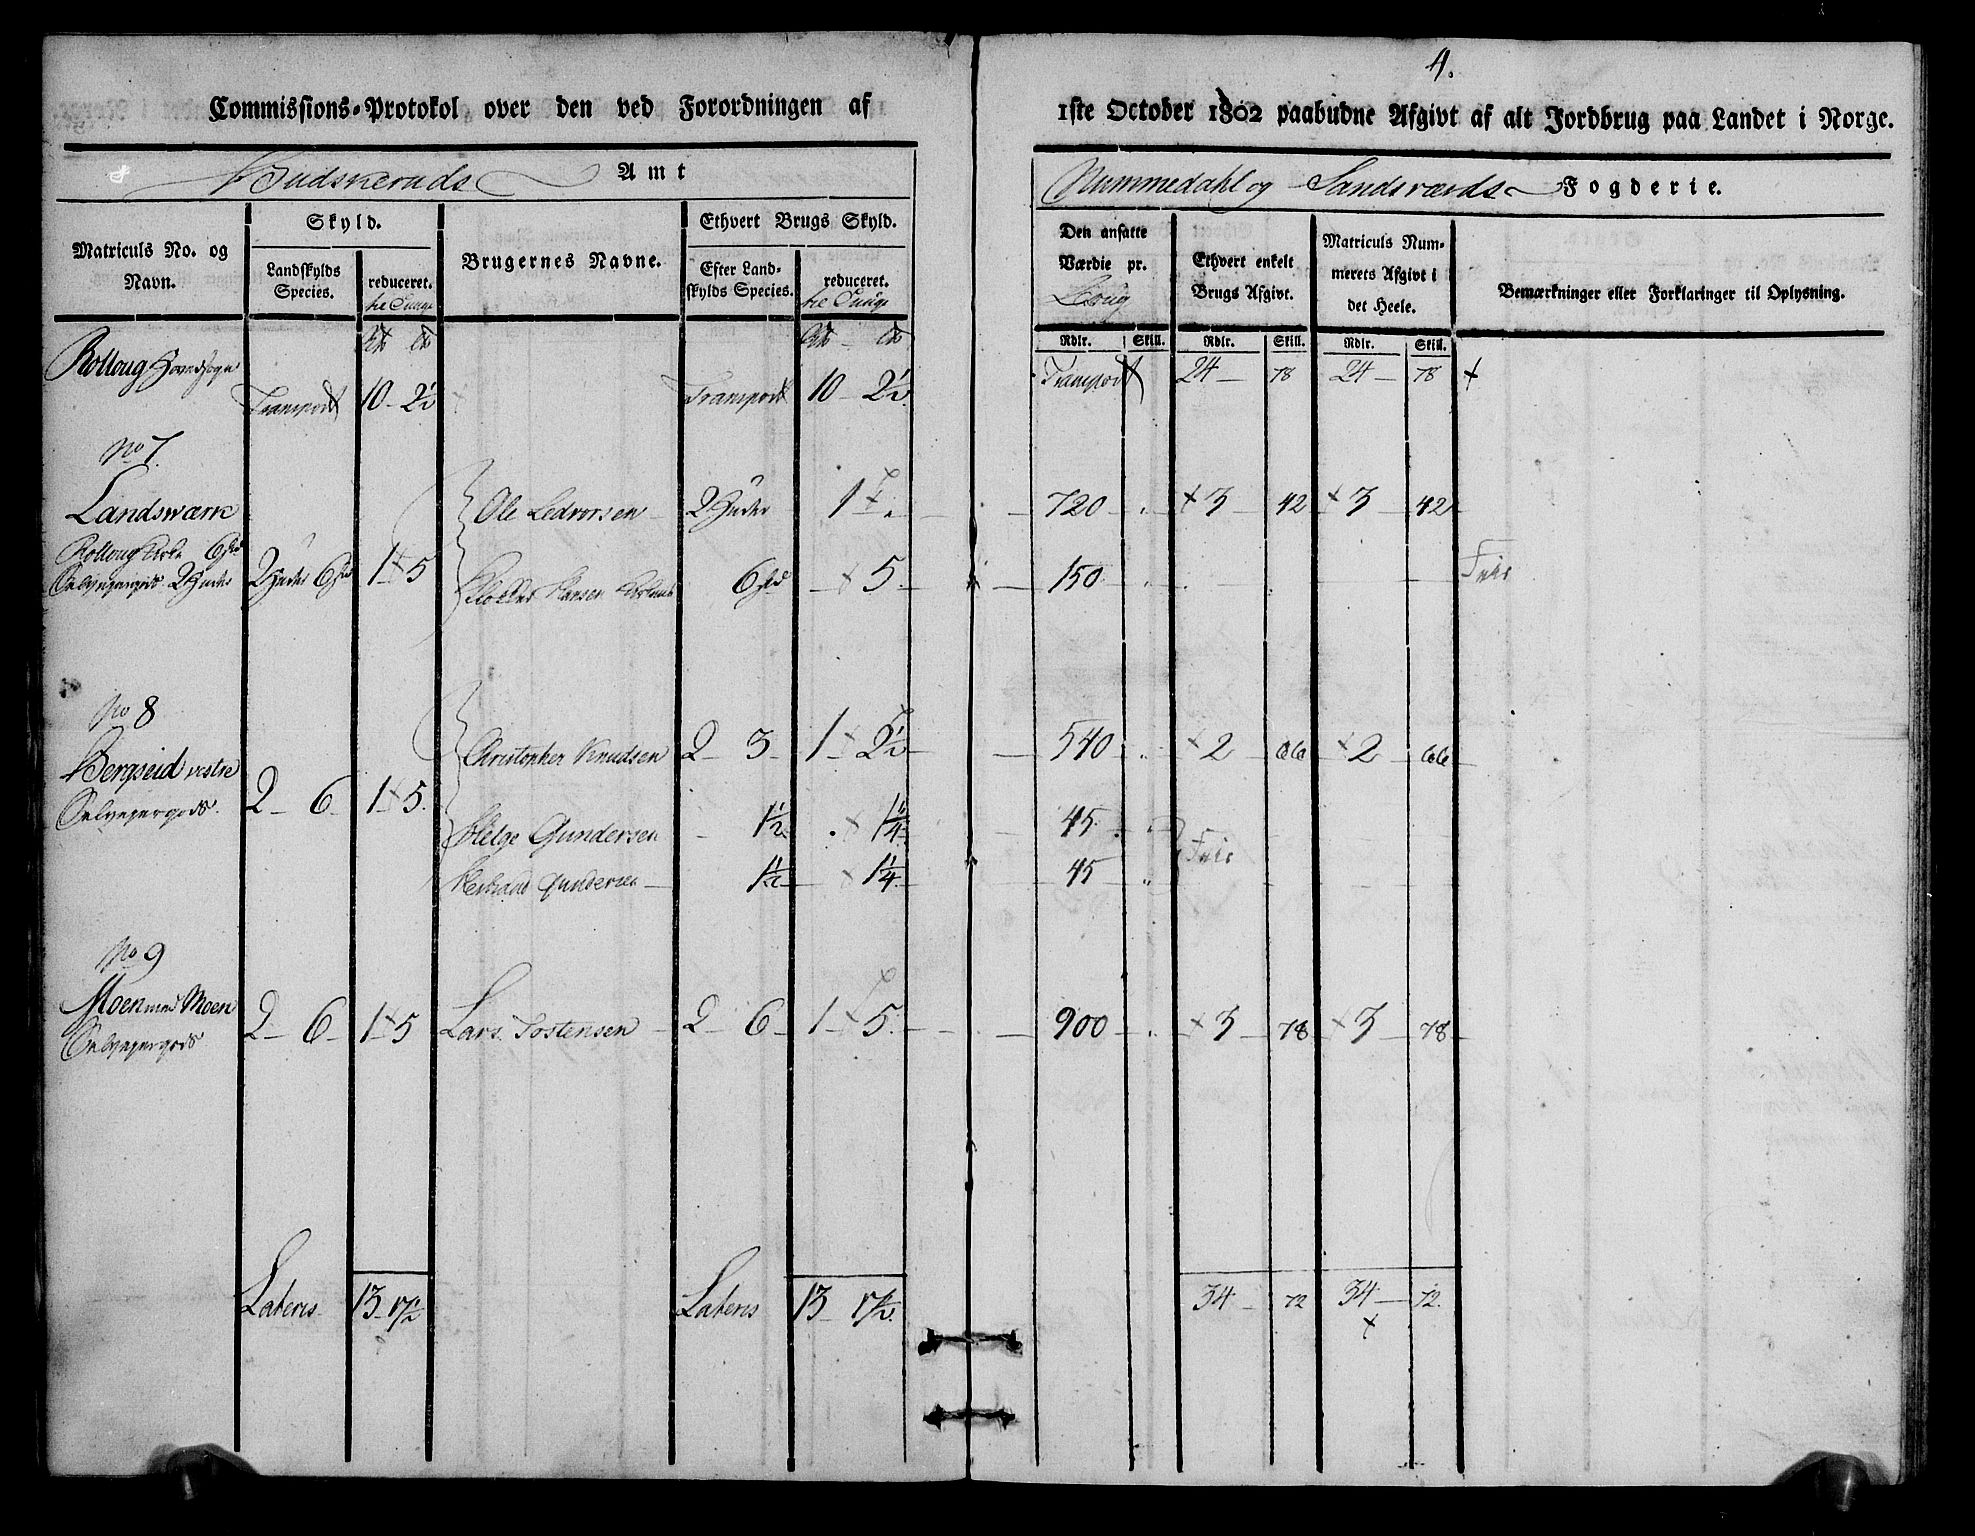 4.
Commissions-Protokol over den ved Forordningen af 1ste October 1802 paabudne Afgivt af alt Jordbrug paa Landet i Norge.
Budskeruds Amt
Nummedahl og Sandsværds Fogderie.
Matriculs No. og Navn.
Skyld.
Landskylds Species.
reduceret.
Brugernes Navne.
Ethvert Brugs Skyld.
Efter Landskylds Species.
reduceret.
Den ansatte Værdie pr.
Ethvert enkelt Brugs Afgivt.
Matriculs Nummerets Afgivt i det Heele.
Bemærkninger eller Forklaringer til Oplysning.
Rdlr. Skill. Rdlr. Skill. Rdlr. Skill.
Rolloug Hovedsogn
Transport 10 - 2½ Transport 10 - 2½ Transport 24 - 78 24 - 78
No 7.
Landswærk Ole Ledvorsen 2 Huder 1 720 3 42 3 42
Rolloug Kirke 6 skd
Selvejergods 2 Huder 2 Huder 6 skd 1 5 Hansen 6 skd 5 150 Frie
No 8
Bergseid vestre Christopher Knudsen 2 3 1 2½ 540 2 66 2 66
Selvejergods. 2 - 6 1 5.
Helge Gundersen 1½ 1¼ 45. Frie
Gundersen 1½ 1¼ 45
No 9
Moen med Moen
Selvejergods 2 - 6 1 5 Lars Tostensen 2 - 6 1 5. 900 3 78 3 78
Lateris 13 - 17½ Lateris 13 - 17½ 34 - 72 34 - 72.